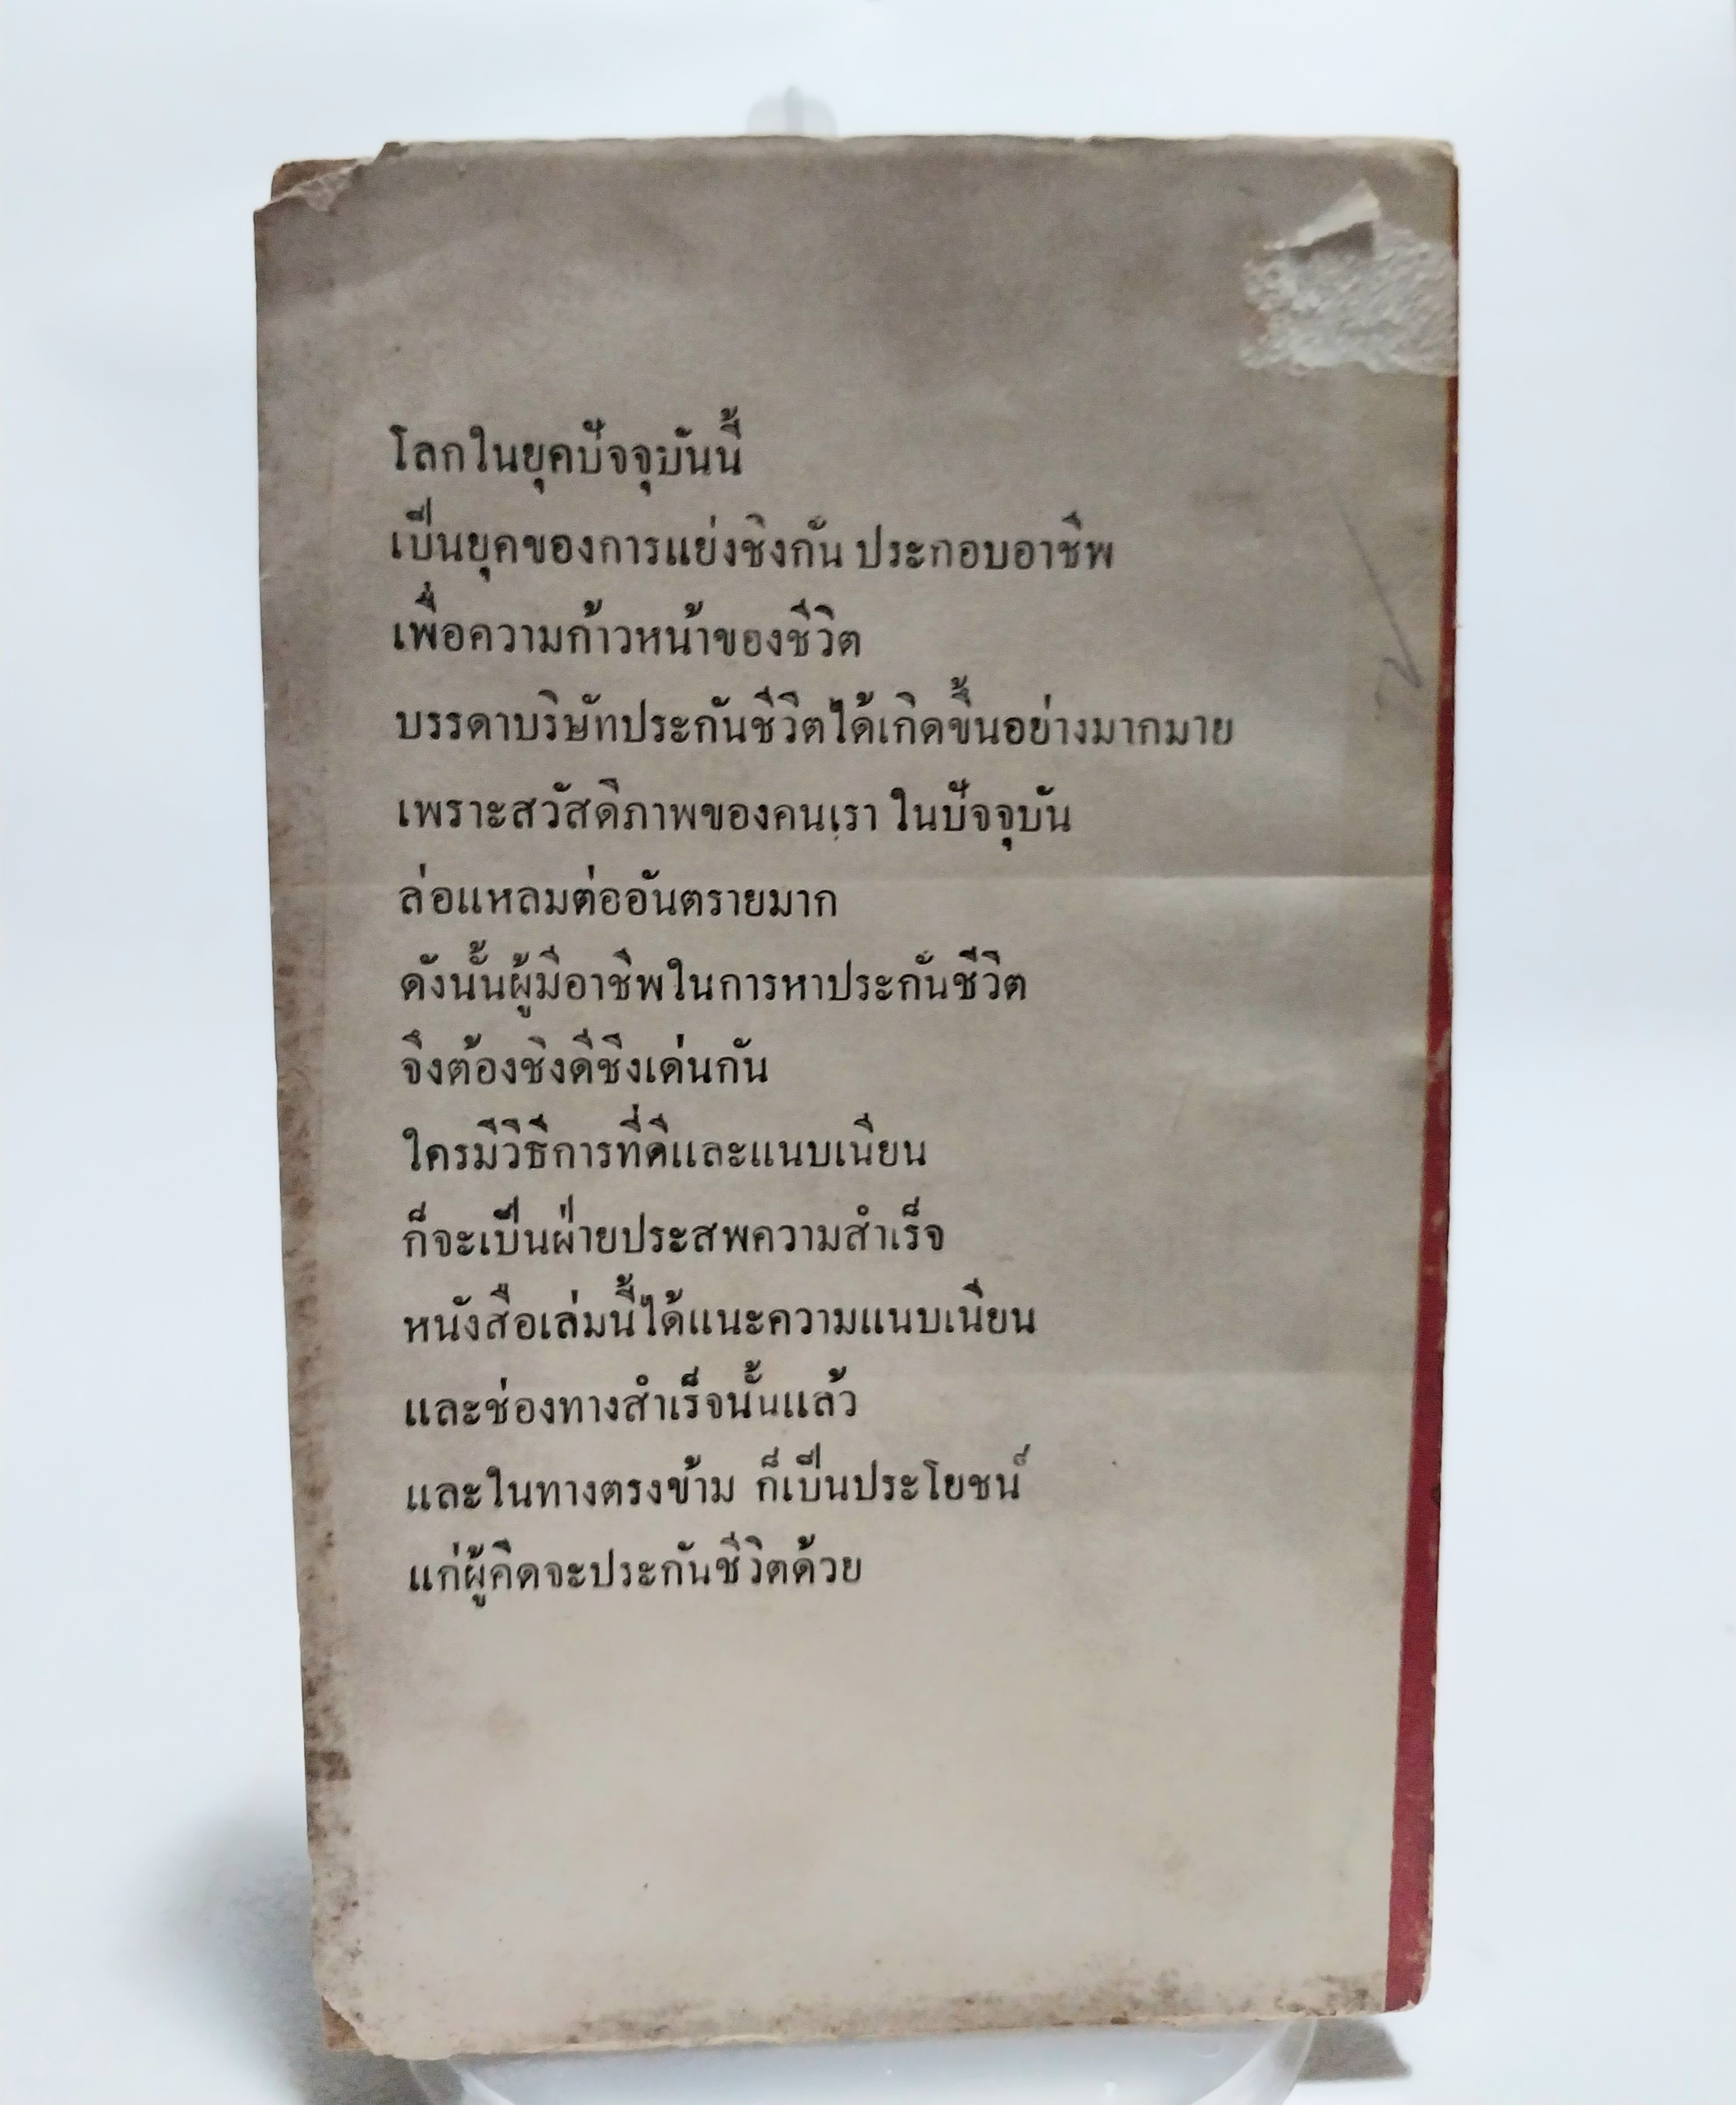 โลกในยุคปัจจุบันนี้
เป็นยุคของการแย่งชิงกัน ประกอบอาชีพ
เพื่อความก้าวหน้าของชีวิต
บรรดาบริษัทประกันชีวิตได้เกิดขึ้นอย่างมากมาย
เพราะสวัสดิภาพของคนเรา ในปัจจุบัน
ล่อแหลมต่ออันตรายมาก
ดังนั้นผู้มีอาชีพในการหาประกันชีวิต
จึงต้องชิงดีชิงเด่นกัน
ใครมีวิธีการที่ดีและแนบเนียน
ก็จะเป็นฝ่ายประสพความสำเร็จ
หนังสือเล่มนี้ได้แนะความแนบเนียน
และช่องทางสำเร็จนั้นแล้ว
และในทางตรงข้าม ก็เป็นประโยชน์
แก่ผู้คิดจะประกันชีวิตด้วย